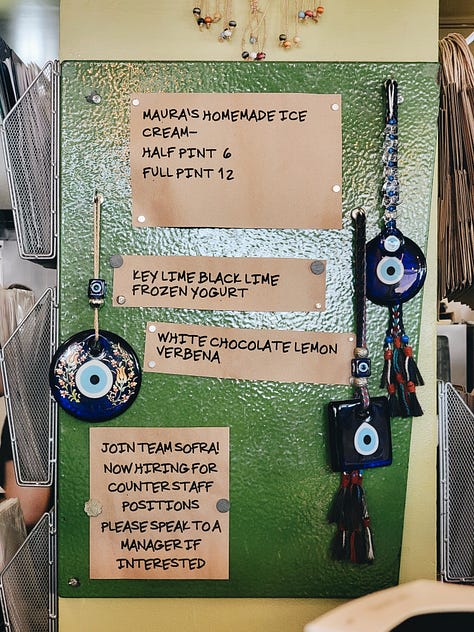 MAURA'S HOMEMADE ICE
CREAM–
HALF PINT 6
FULL PINT 12
KEY LIME BLACK LIME
FROZEN YOGURT
WHITE CHOCOLATE LEMON
VERBENA
JOIN TEAM SOFRA!
NOW HIRING FOR
COUNTER STAFF
POSITIONS
PLEASE SPEAK TO A
MANAGER IF
INTERESTED